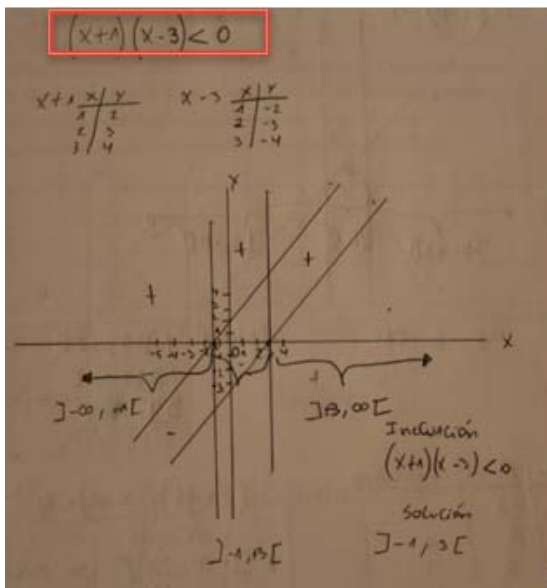 (x+1)(x-3)< 0
x+1 x | y
1 | 2
2 | 3
3 | 4
x-3 x | y
1 | -2
2 | -3
3 | -4
y
+ + +
-5 -4 -3
x
+
]-∞, [
]3, ∞[
-
Inecuación
(x+1)(x-3)<0
Solución
]-1, 3[
]-1, 3[